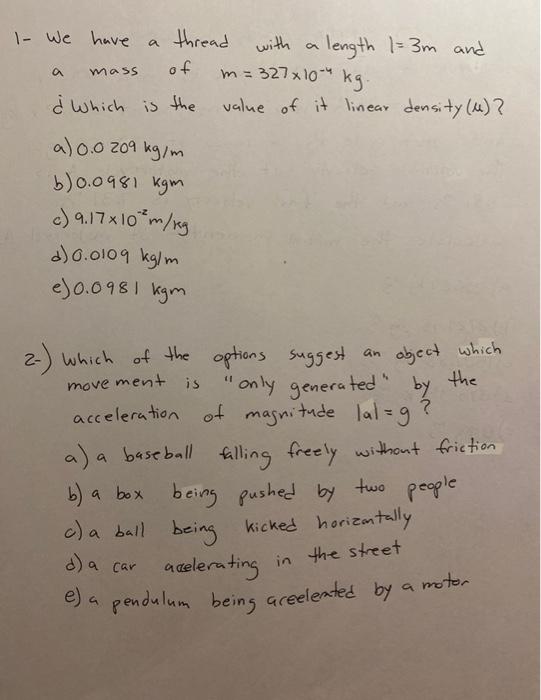 1- We have a thread with a length l=3m and
a mass of m = 327x10⁻⁴ kg.
¿Which is the value of it linear density (μ)?
a) 0.0209 kg/m
b) 0.0981 kgm
c) 9.17x10⁻² m/kg
d) 0.0109 kg/m
e) 0.0981 kgm
2-) Which of the options suggest an object which
movement is "only generated" by the
acceleration of magnitude |a| = g ?
a) a baseball falling freely without friction
b) a box being pushed by two people
c) a ball being kicked horizontally
d) a car accelerating in the street
e) a pendulum being acceelerated by a motor